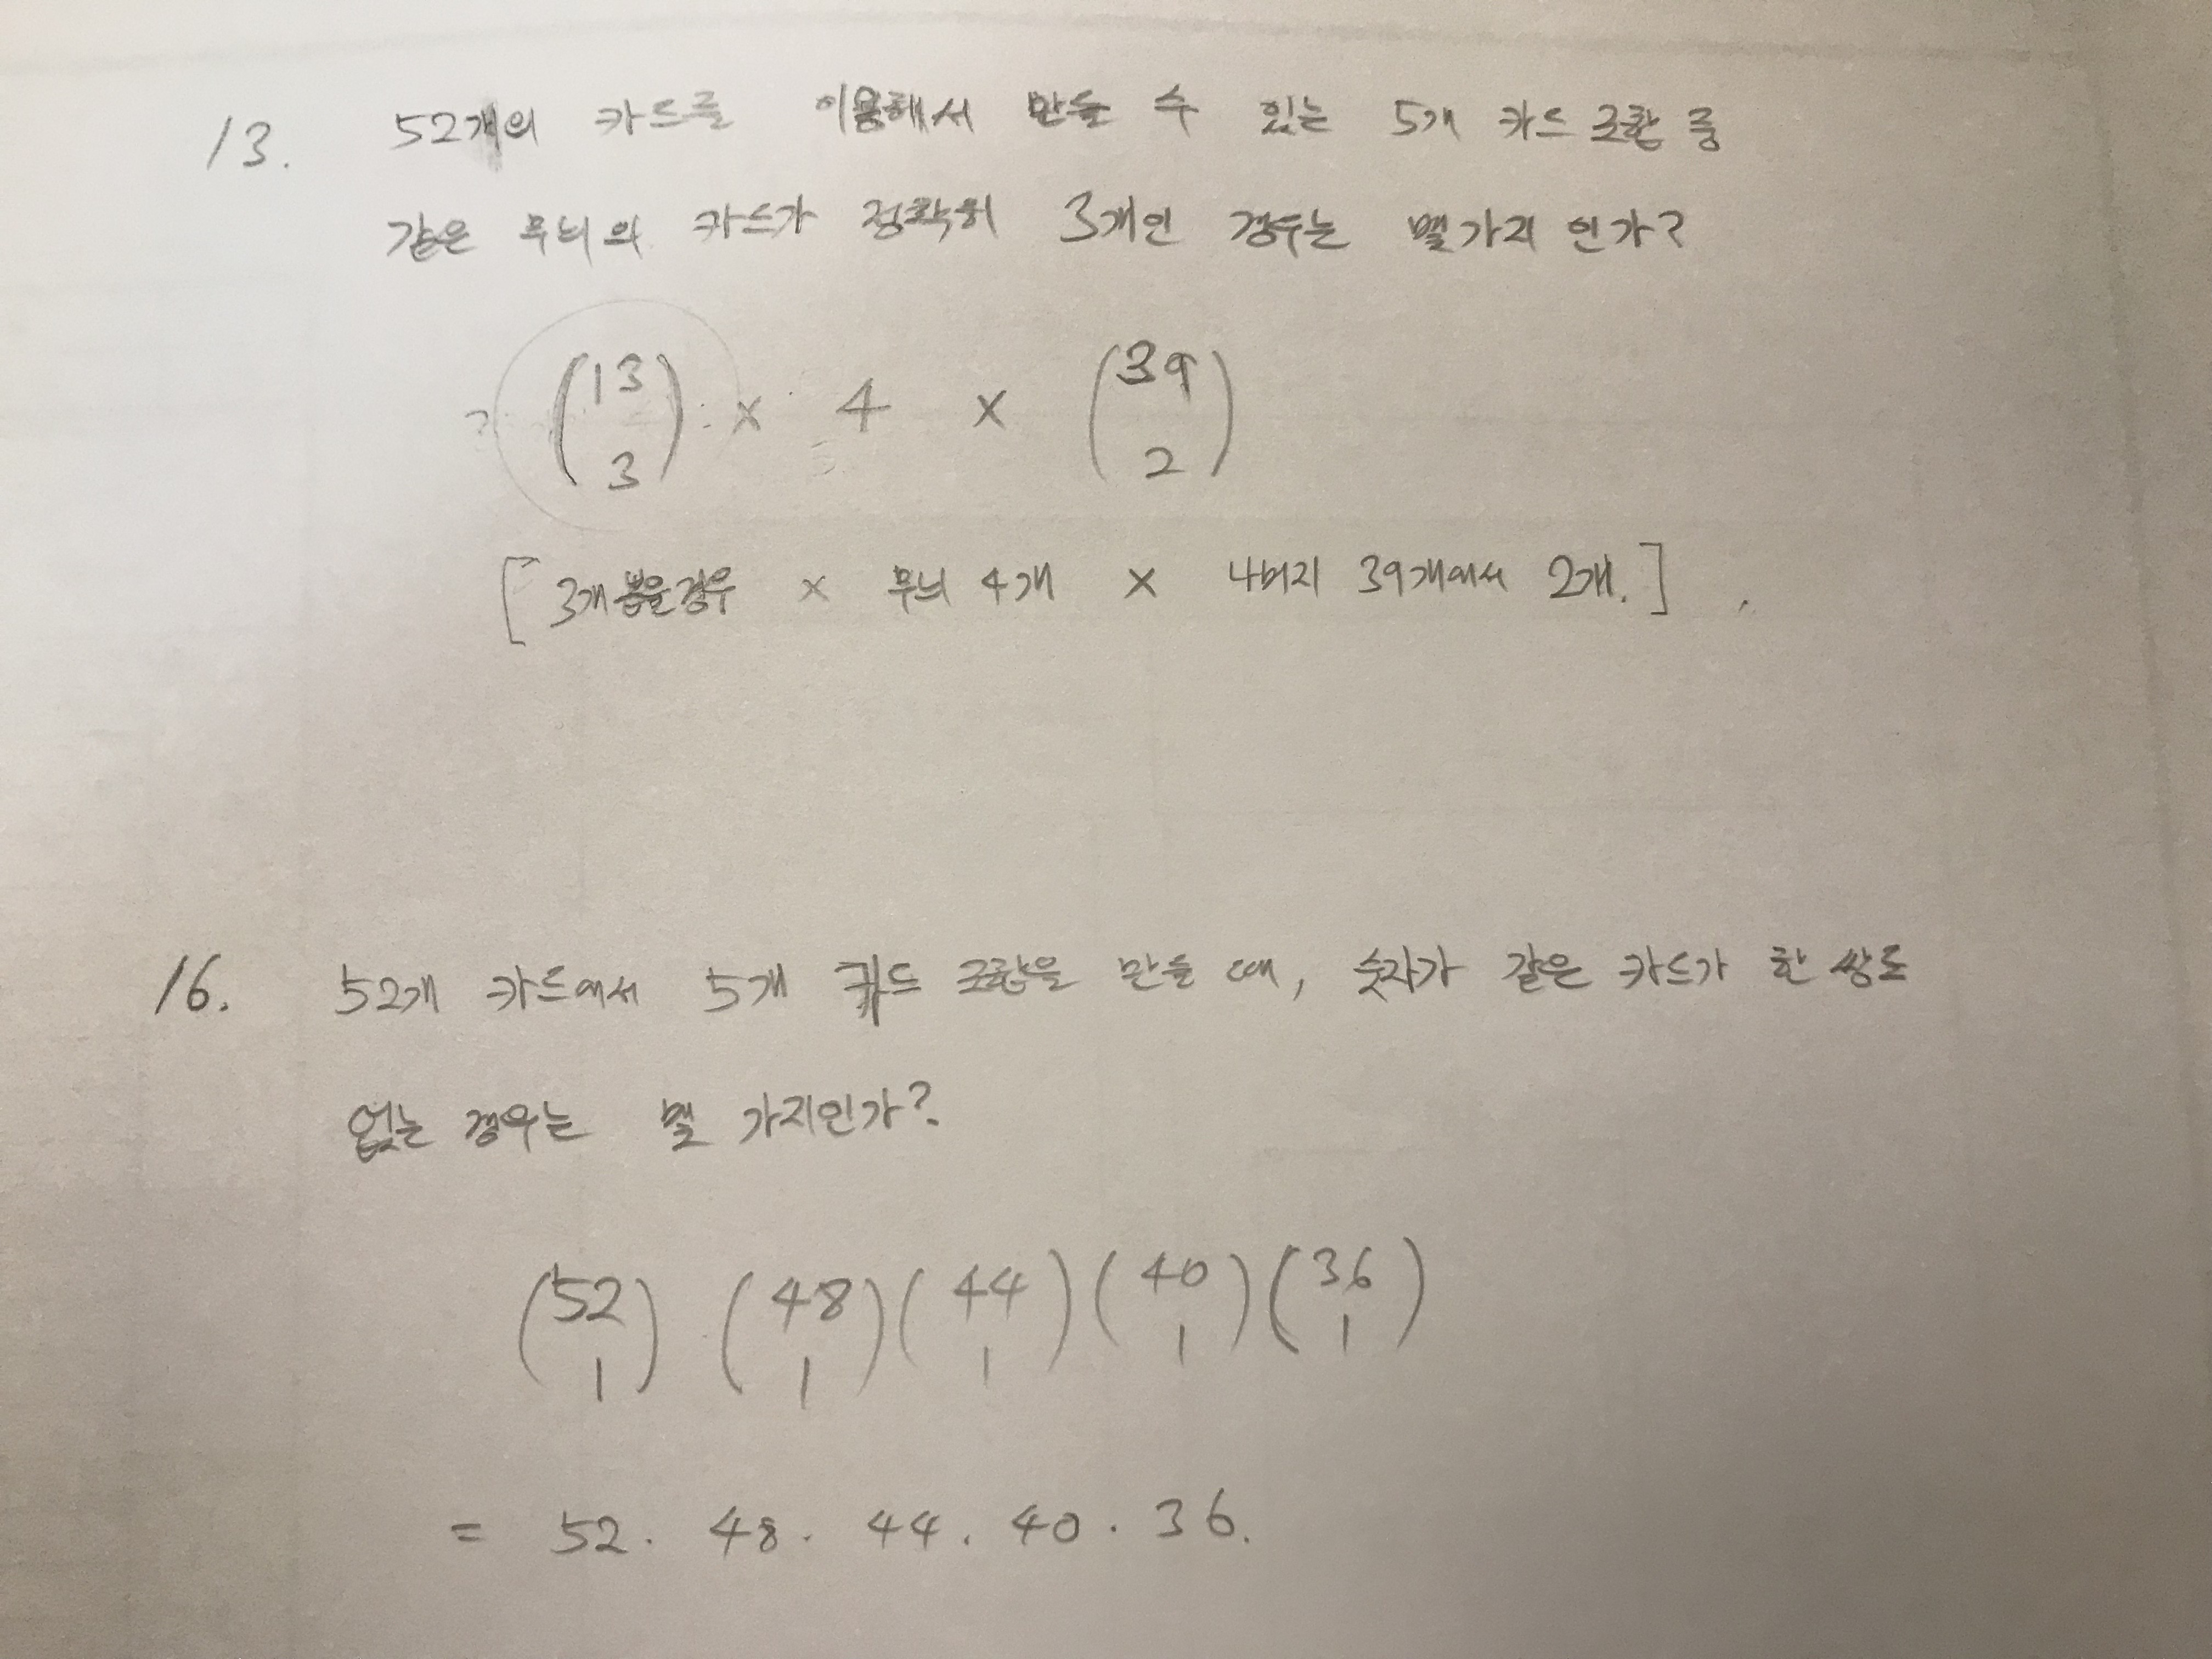 13. 52개의 카드를 이용해서 만들 수 있는 5개 카드 조합 중
같은 무늬의 카드가 정확히 3개인 경우는 몇가지 인가?
(13 3) × 4 × (39 2)
[3개 뽑을경우 × 무늬 4개 × 나머지 39개에서 2개.]
16. 52개 카드에서 5개 카드 조합을 만들 때, 숫자가 같은 카드가 한 쌍도
없는 경우는 몇 가지인가?
(52 1) (48 1) (44 1) (40 1) (36 1)
= 52 · 48 · 44 · 40 · 36.